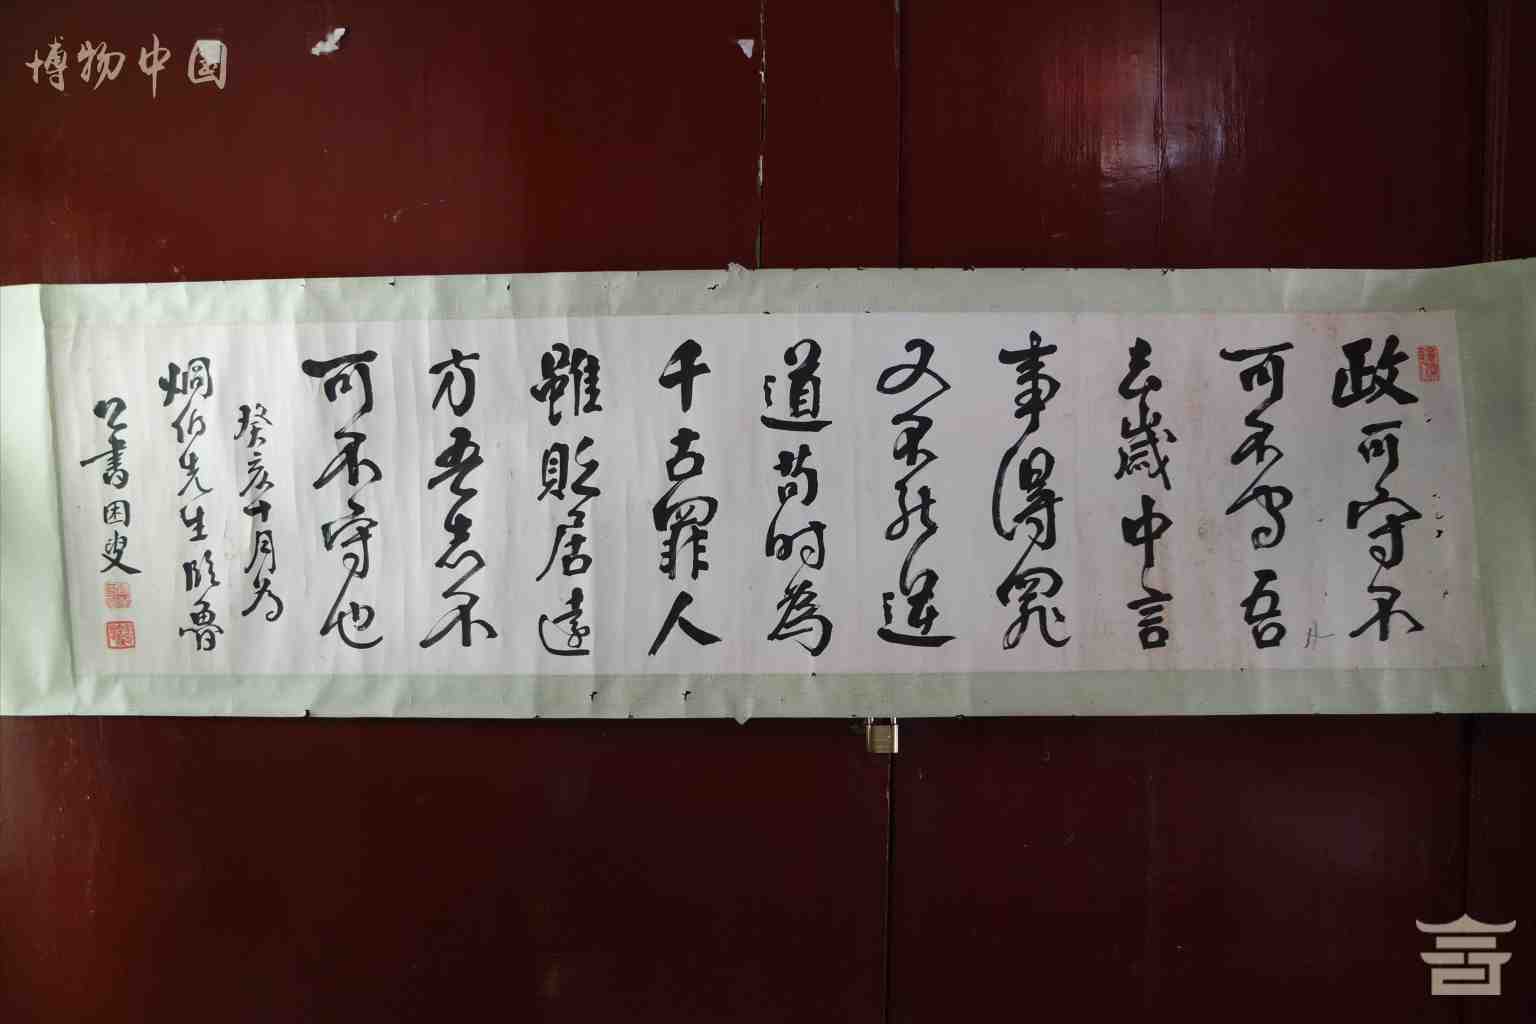 博物中国
政可守不
可不守吾
去歲中言
事得罪
又不能逆
道苟时為
千古罪人
雖貶居遠
方吾志不
可不守也
癸亥十月为
烱伯先生临魯
公書困叟